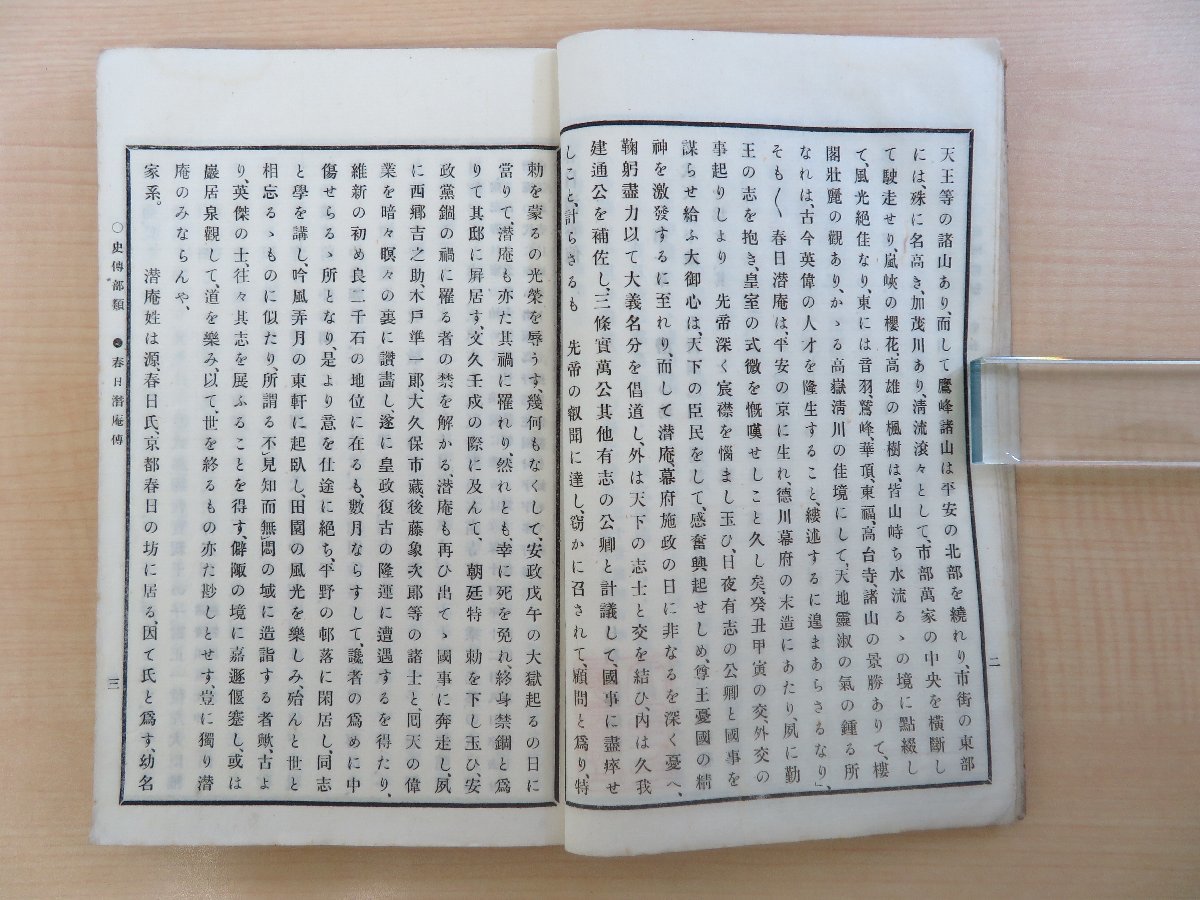 天王等の諸山あり、而して鷹峰諸山は平安の北部を繞れり、市街の東部
には、殊に名高き、加茂川あり、淸流滾々として、市部萬家の中央を橫斷し
て駛走せり、嵐峽の櫻花、高雄の楓樹は、皆山峙ち水流るゝの境に點綴し
て、風光絕佳なり、東には音羽、鷲峰、華頂、東福、高台寺、諸山の景勝ありて、樓
閣壯麗の觀あり、かゝる高嶽淸川の佳境にして、天地靈淑の氣の鍾る所
なれは、古今英偉の人才を隆生すること、縷述するに遑まあらさるなり」、
そも〱春日潜庵は、平安の京に生れ、德川幕府の末造にあたり、夙に勤
王の志を抱き、皇室の式微を慨嘆せしこと久し矣、癸丑甲寅の交、外交の
事起りしより　先帝深く宸襟を惱まし玉ひ、日夜有志の公卿と國事を
謀らせ給ふ大御心は、天下の臣民をして、感奮興起せしめ、尊王憂國の精
神を激發するに至れり、而して潜庵、幕府施政の日に非なるを深く憂へ、
鞠躬盡力以て大義名分を倡道し、外は天下の志士と交を結ひ、內は久我
建通公を補佐し、三條實萬公其他有志の公卿と計議して、國事に盡瘁せ
しこと、計らさるも　先帝の叡聞に達し、窃かに召されて、顧問と爲り、特
二
勅を蒙るの光榮を辱うす、幾何もなくして、安政戊午の大獄起るの日に
當りて、潜庵も亦た其禍に罹れり、然れとも、幸に死を免れ、終身禁錮と爲
りて其邸に屛居す、文久壬戌の際に及んて、朝廷特勅を下し玉ひ、安
政黨錮の禍に罹る者の禁を解かる、潜庵も再ひ出てゝ國事に奔走し、夙
に西鄕吉之助、木戶準一郞、大久保市藏、後藤象次郞等の諸士と、囘天の偉
業を暗々瞑々の裏に讃畵し、遂に皇政復古の隆運に遭遇するを得たり、
維新の初め良二千石の地位に在るも、數月ならすして、讒者の爲めに中
傷せらるゝ所となり、是より意を仕途に絕ち、平野の邨落に閑居し、同志
と學を講し、吟風弄月の東軒に起臥し、田園の風光を樂しみ、殆んと世と
相忘るゝものに似たり、所謂る不見知而無悶の域に造詣する者歟、古よ
り、英傑の士、往々其志を展ふることを得す、僻陬の境に嘉遯偃蹇し、或は
巖居泉觀して、道を樂み、以て、世を終るもの亦た尠しとせす、豈に獨り潜
庵のみならんや、
家系。　潜庵姓は源、春日氏、京都春日の坊に居る、因て氏と爲す、幼名
○史傳部類　春日潜庵傳　三